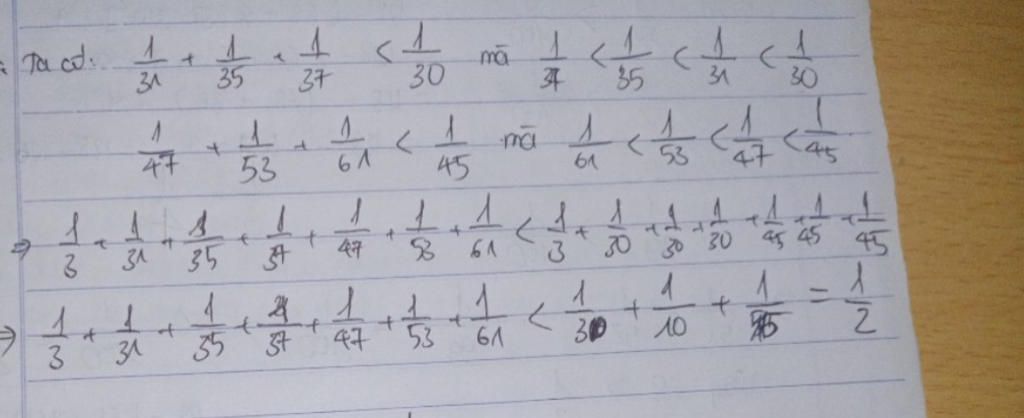 Ta có: 1/31 + 1/35 + 1/37 < 1/30 mà 1/37 < 1/35 < 1/31 < 1/30
1/47 + 1/53 + 1/61 < 1/45 mà 1/61 < 1/53 < 1/47 < 1/45
⇒ 1/3 + 1/31 + 1/35 + 1/37 + 1/47 + 1/53 + 1/61 < 1/3 + 1/30 + 1/30 + 1/30 + 1/45 + 1/45 + 1/45
⇒ 1/3 + 1/31 + 1/35 + 1/37 + 1/47 + 1/53 + 1/61 < 1/3 + 1/10 + 1/15 = 1/2